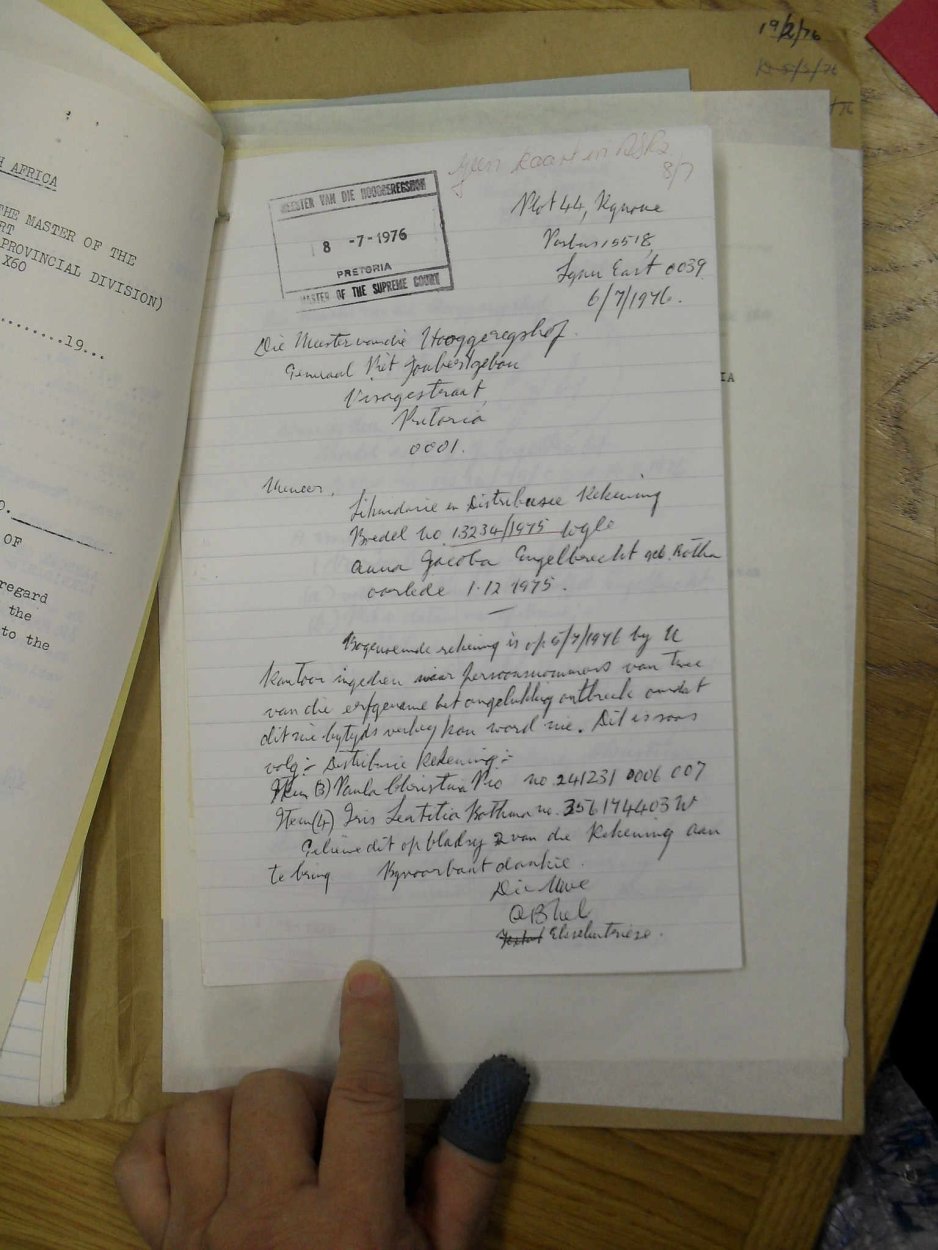 19/2/76
H AFRICA
THE MASTER OF THE
RT
PROVINCIAL DIVISION)
X60
..........19...
O.
OF
regard
the
to the
IA
Geen kaart in
8/7
MEESTER VAN DIE HOOGGEREGSHOF
8 -7-1976
PRETORIA
MASTER OF THE SUPREME COURT
Plot 44,
Posbus 15518
Lynn East 0039
6/7/1976.
Die Meester van die Hooggeregshof.
Generaal Piet Joubertgebou
Visagestraat,
Pretoria
0001.
Meneer,
Likwidasie en Distribusie Rekening
Boedel no 13234/1975 wyle
Anna Jacoba Engelbrecht geb. Botha
oorlede 1.12 1975.
Bogenoemde rekening is op 5/7/1976 by U
kantoor ingedien maar persoonsnommers van twee
van die erfgename het ongelukkig ontbreek omdat
dit nie bytyds verkry kon word nie. Dit is soos
volg :- Distribusie Rekening :-
Item (3) Paula Christina no 241231 0006 007
Item (4) Iris Leatitia Bothma no. 356174403 W
Geliewe dit op bladsy 2 van die Rekening aan
te bring Byvoorbaat dankie.
Die Uwe
Eksekutriese.